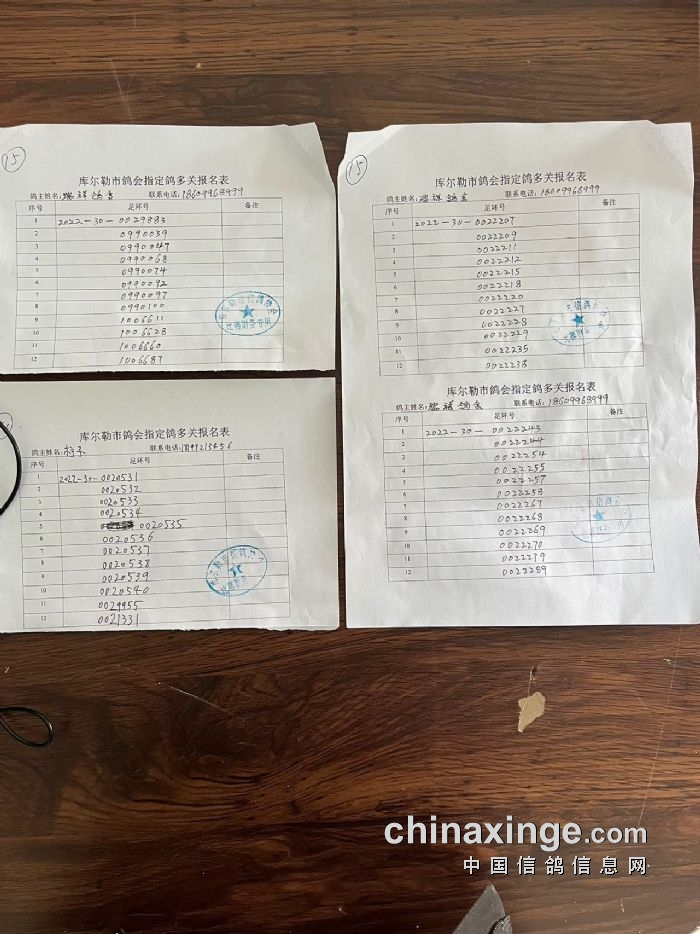 15
库尔勒市鸽会指定鸽多关报名表
鸽主姓名: 瑞祥鸽舍 联系电话: 18609968999
序号 足环号 备注
1 2022-30-0029883
2 0990039
3 0990047
4 0990068
5 0990074
6 0990092
7 0990097
8 0990100
9 1006611
10 1006628
11 1006660
12 1006687
库尔勒市鸽会指定鸽多关报名表
鸽主姓名: 联系电话:
序号 足环号 备注
1 2022-30-0020531
2 0020532
3 0020533
4 0020534
5 0020535
6 0020536
7 0020537
8 0020538
9 0020539
10 0020540
11 0029955
12 0021331
15
库尔勒市鸽会指定鸽多关报名表
鸽主姓名: 瑞祥鸽舍 联系电话: 18609968999
序号 足环号 备注
1 2022-30-0022207
2 0022209
3 0022211
4 0022212
5 0022215
6 0022218
7 0022220
8 0022227
9 0022228
10 0022229
11 0022235
12 0022238
库尔勒市鸽会指定鸽多关报名表
鸽主姓名: 瑞祥鸽舍 联系电话: 18609968999
序号 足环号 备注
1 2022-30-0022243
2 0022244
3 0022254
4 0022255
5 0022257
6 0022258
7 0022267
8 0022268
9 0022269
10 0022270
11 0022279
12 0022289
chinaxinge.com
中国信鸽信息网